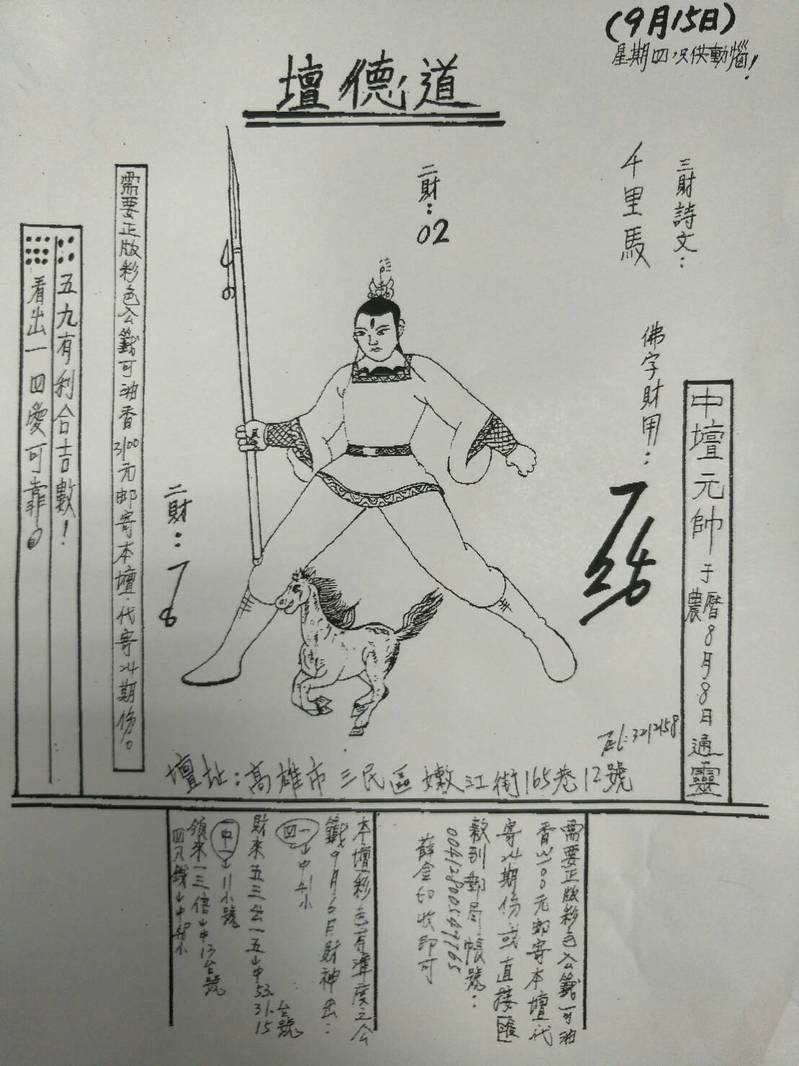 (9月15日)
星期四,只供動惱!
道德壇
三財詩文：
千里馬
二財：02
佛字財用：
中壇元帥于農曆8月8日通靈
需要正版彩色公籤可油香3100元郵寄本壇代寄24期份。
五九有利合吉數！
看出一四變可靠。
二財：
78
Tel:3212158
壇址：高雄市三民區嫩江街165巷12號
需要正版彩色公籤可油
香3100元郵寄本壇代
寄24期份或直接匯
款到郵局帳號：
00412800547765
薛金切收即可
本壇彩色有準度之公
籤9月6日財神出：
財來五三公一五山中53.31.15
台號
中山11小號
領來一三倍山中13台號